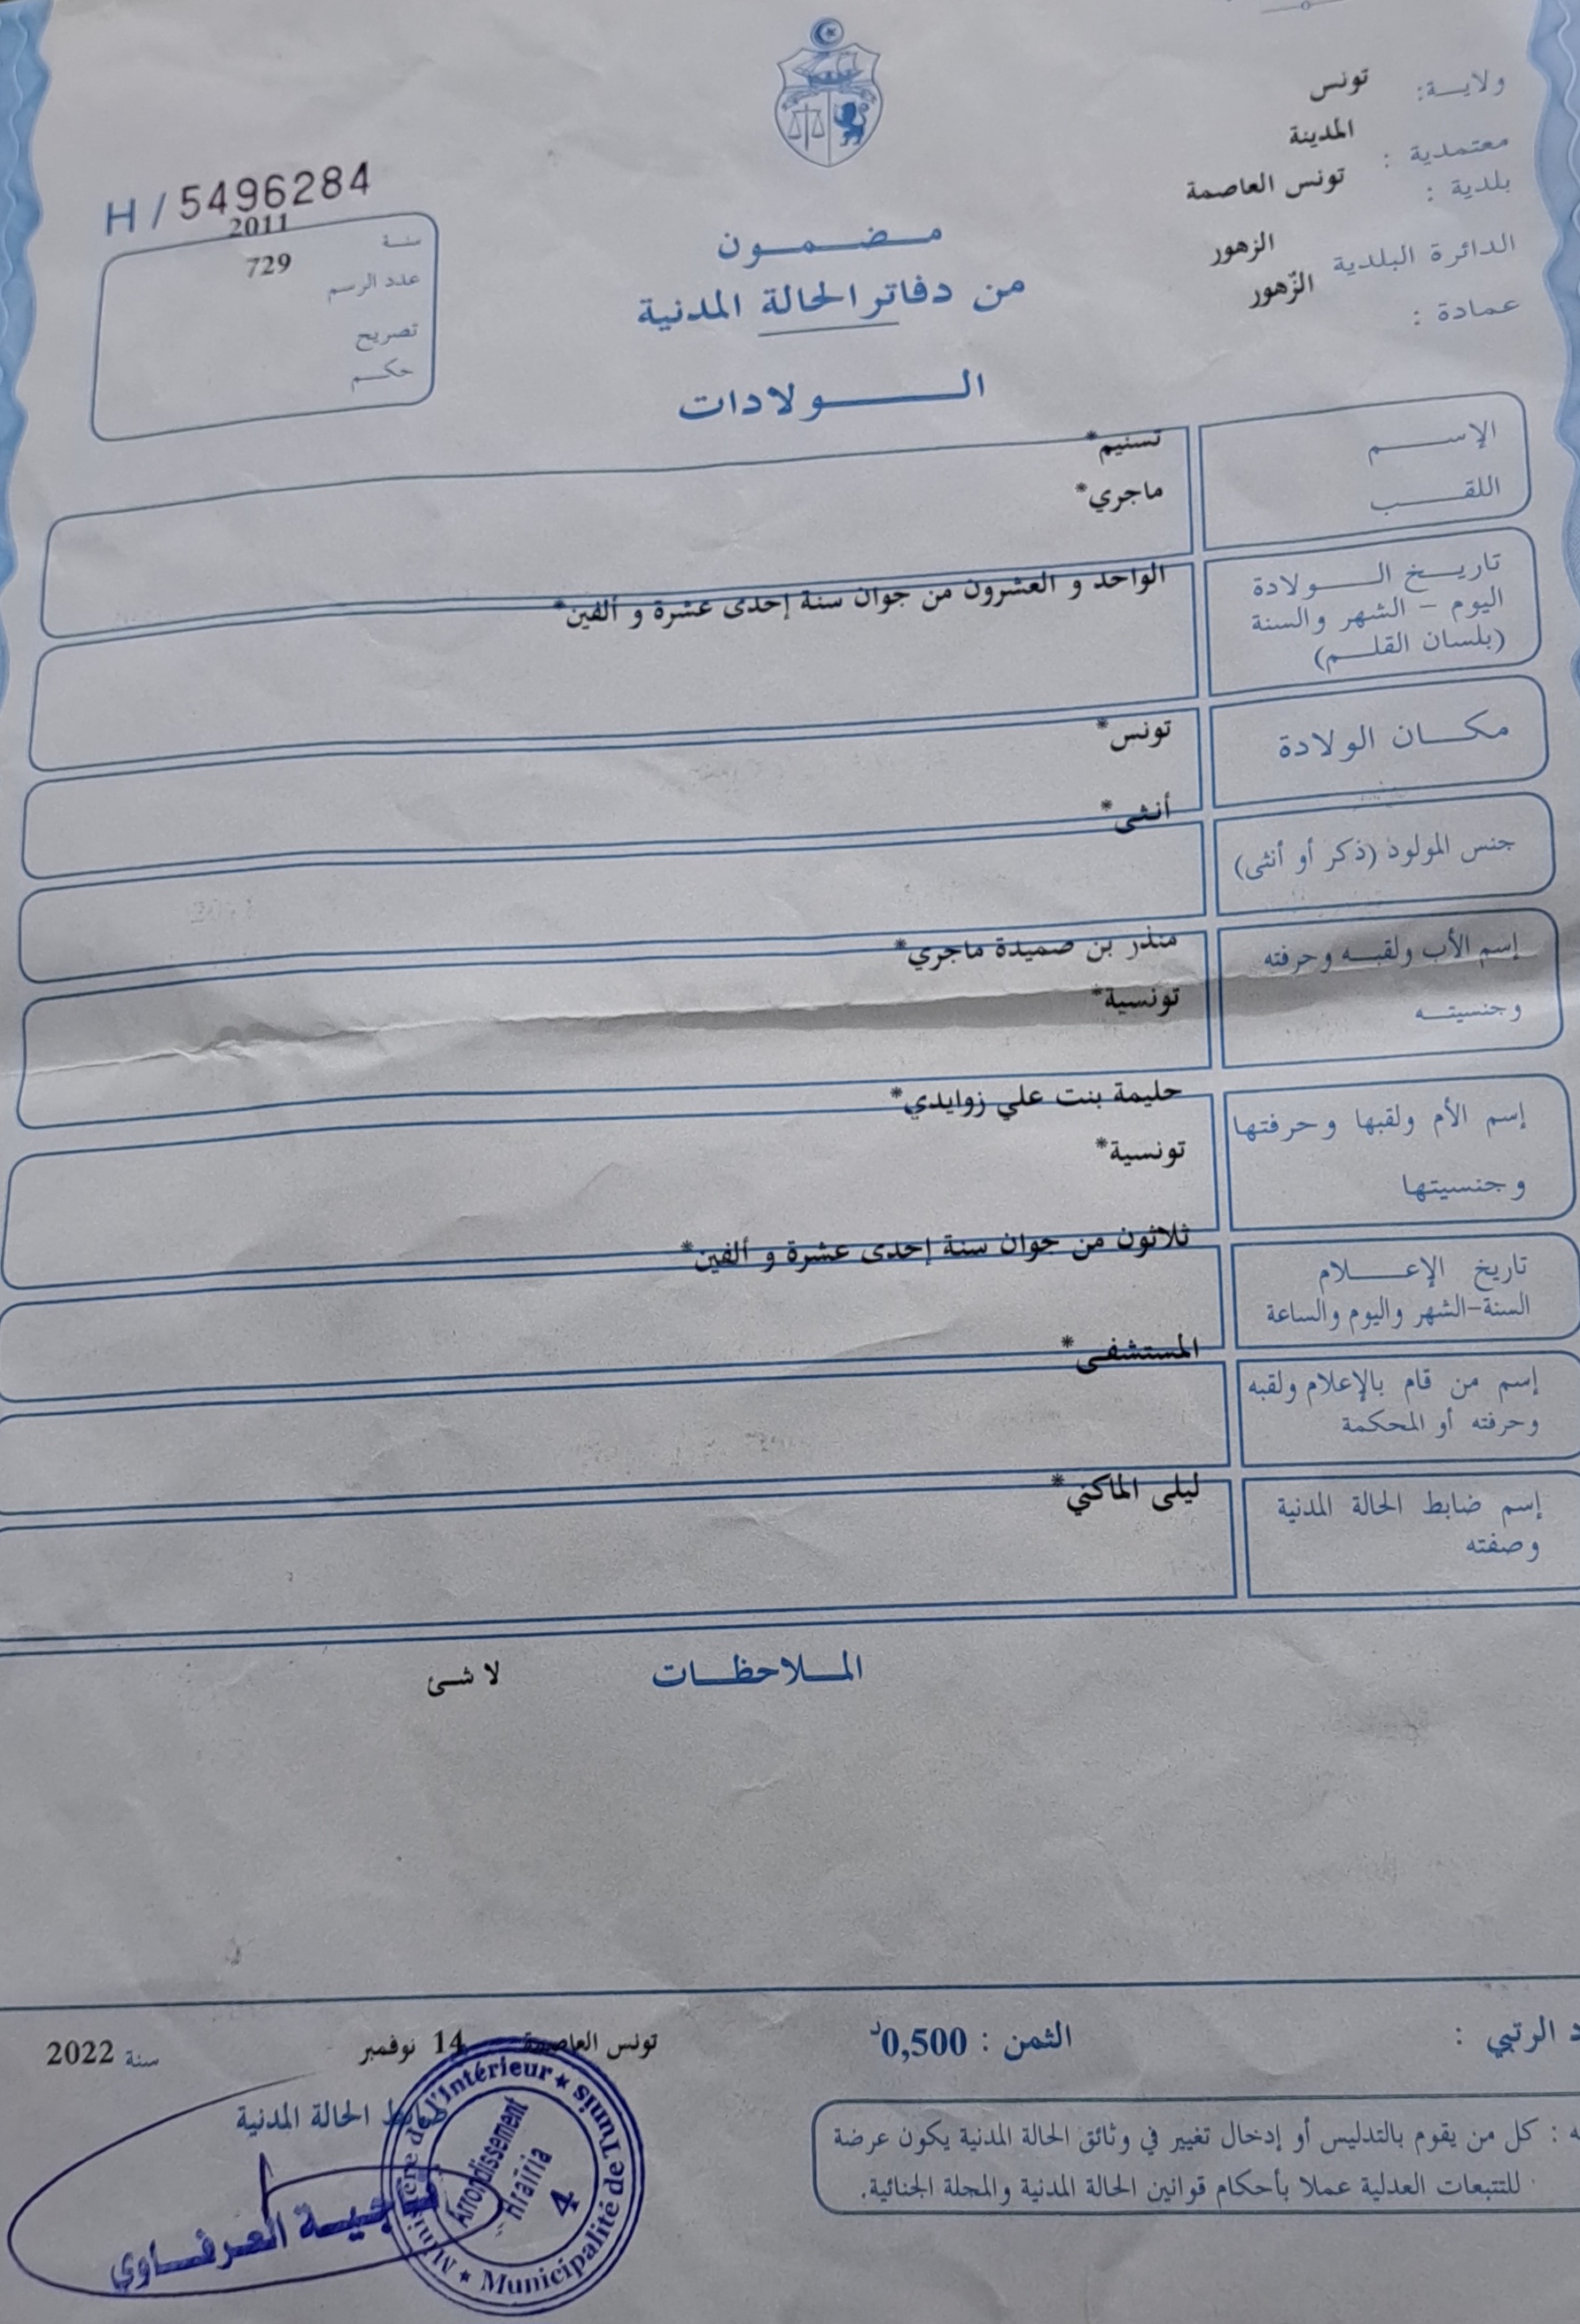 ولاية: تونس
معتمدية : المدينة
بلدية : تونس العاصمة
الدائرة البلدية الزهور
عمادة : الزّهور
H / 5496284
سنة 2011
عدد الرسم 729
تصريح
حكم
مضمون
من دفاتر الحالة المدنية
الولادات
الإسم تسنيم*
اللقب ماجري*
تاريخ الولادة
اليوم - الشهر والسنة
(بلسان القلم)
الواحد و العشرون من جوان سنة إحدى عشرة و ألفين*
مكان الولادة تونس*
جنس المولود (ذكر أو أنثى) أنثى*
إسم الأب ولقبه وحرفته منذر بن صميدة ماجري*
وجنسيته تونسية*
إسم الأم ولقبها وحرفتها حليمة بنت علي زوايدي*
وجنسيتها تونسية*
تاريخ الإعلام
السنة-الشهر واليوم والساعة
ثلاثون من جوان سنة إحدى عشرة و ألفين*
إسم من قام بالإعلام ولقبه
وحرفته أو المحكمة
المستشفى*
إسم ضابط الحالة المدنية
وصفته
ليلى الماكني*
الملاحظات لا شئ
الرتبي :
الثمن : 0,500د
تونس العاصمة 14 نوفمبر سنة 2022
ضابط الحالة المدنية
ناجية العرفاوي
Ministère de l'Intérieur ★ Municipalité de Tunis ★
Arrondissement
Hrairia
4
: كل من يقوم بالتدليس أو إدخال تغيير في وثائق الحالة المدنية يكون عرضة
للتتبعات العدلية عملا بأحكام قوانين الحالة المدنية والمجلة الجنائية.